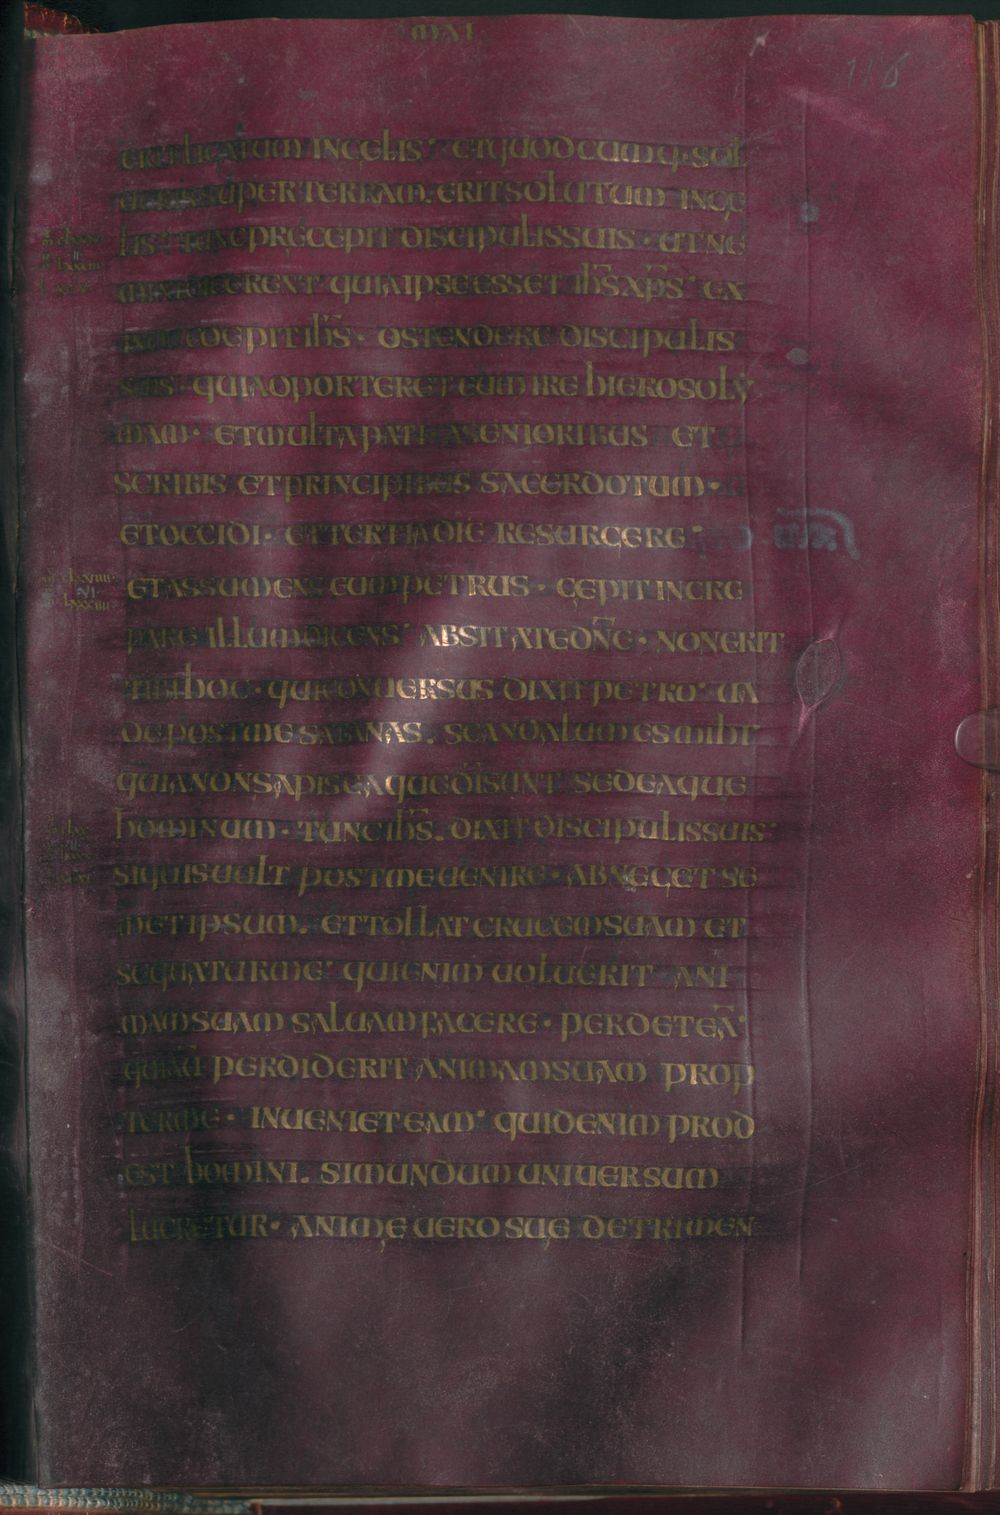 116
ERIT LIGATUM INCĘLIS· ETQUODCUMQ· SOL
UERIS SUPER TERRAM. ERITSOLUTUM INCĘ
LIS· TUNC PRĘCEPIT DISCIPULISSUIS · UTNE
MINIDICERENT QUIAIPSEESSET IHS̄XPS̄· EX
INDE COEPITIHS̄ · OSTENDERE DISCIPULIS
SUIS · QUIAOPORTERET EUM IRE HIEROSOLY
MAM · ETMULTAPATI ASENIORIBUS ET
SCRIBIS ETPRINCIPIBUS SACERDOTUM ·
ETOCCIDI · ETTERTIADIE RESURGERE·
ETASSUMENS EUMPETRUS · CĘPITINCRE
PARE ILLUMDICENS· ABSIT ATEDN̄E · NONERIT
TIBIHOC · QUICONUERSUS DIXIT PETRO· UA
DEPOSTMESATANAS. SCANDALUM ES MIHI·
QUIANONSAPIS EAQUEDĪSUNT SEDEAQUE
HOMINUM · TUNCIHS̄. DIXIT DISCIPULISSUIS·
SIQUISUULT POSTMEUENIRE · ABNEGET SE
METIPSUM. ETTOLLAT CRUCEMSUAM ET
SEQUATURME· QUIENIM UOLUERIT ANI
MAMSUAM SALUAMFACERE · PERDETEĀ·
QUIAŪ PERDIDERIT ANIMAMSUAM PROP
TERME · INUENIETEAM· QUIDENIM PROD
EST HOMINI. SIMUNDUM UNIUERSUM
LUCRETUR · ANIMĘ UERO SUĘ DETRIMEN